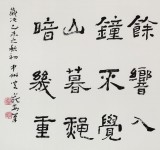 餘響入
鐘不覺
山暮龝
暗幾重